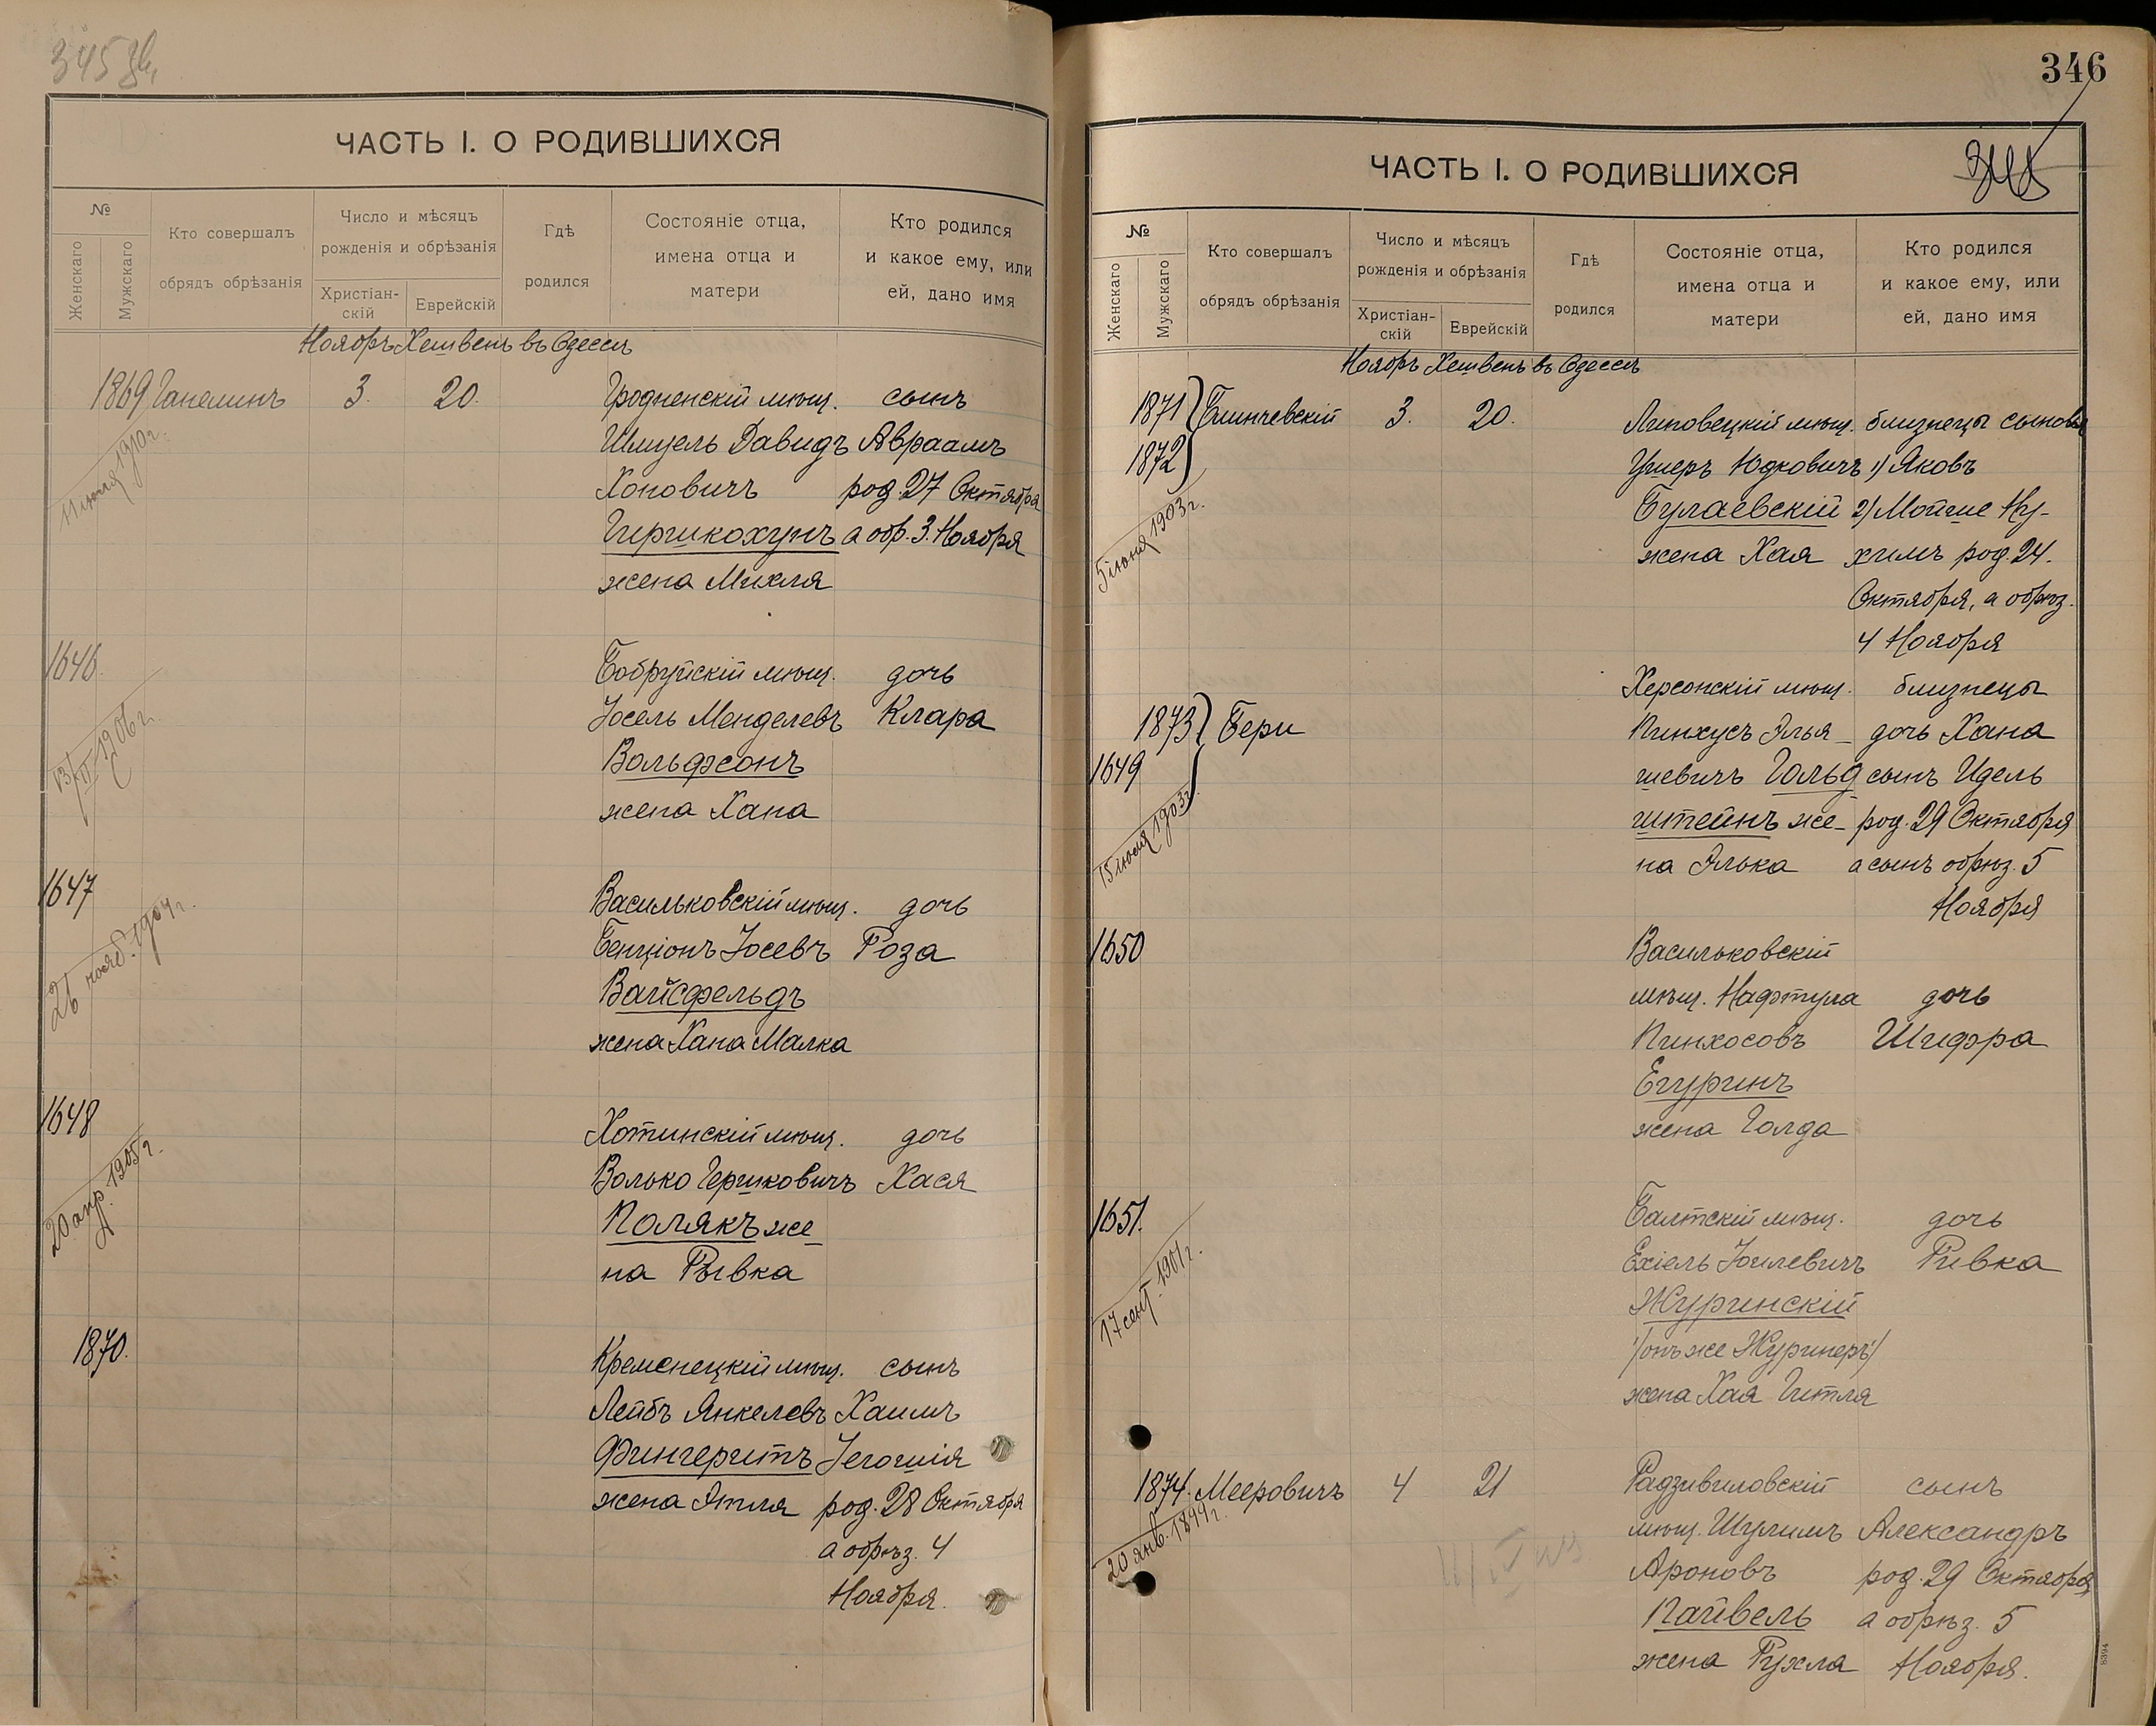 ЧАСТЬ I. О РОДИВШИХСЯ
№
Женскаго
Мужскаго
Кто совершалъ
обрядъ обрѣзанія
Число и мѣсяцъ
рожденія и обрѣзанія
Христіан-
скій
Еврейскій
Гдѣ
родился
Состояніе отца,
имена отца и
матери
Кто родился
и какое ему, или
ей, дано имя
Ноябрь Хешвенъ въ Одессѣ
1869 Ганелинъ 3. 20. Гродненскій мѣщ. сынъ
Шмуель Давидъ Авраамъ
Хоновичъ род. 27 Октября
Гиршкохунъ а обр. 3. Ноября
жена Михля
11 іюля 1910 г.
1646. Бобруйскій мѣщ. дочь
Іосель Менделевъ Клара
Вольфсонъ
жена Хана
13/II 1906 г.
1647 Васильковскій мѣщ. дочь
Бенціонъ Іосевъ Роза
Вайсфельдъ
жена Хана Малка
26 нояб. 1904 г.
1648 Хотинскій мѣщ. дочь
Волько Гершковичъ Хася
Полякъ же
на Рывка
20 апр. 1905 г.
1870. Кременецкій мѣщ. сынъ
Лейбъ Янкелевъ Хаимъ
Фингеритъ Іегошія
жена Этля род. 28 Октября
а обрѣз. 4
Ноября.
346
ЧАСТЬ I. О РОДИВШИХСЯ
№
Женскаго
Мужскаго
Кто совершалъ
обрядъ обрѣзанія
Число и мѣсяцъ
рожденія и обрѣзанія
Христіан-
скій
Еврейскій
Гдѣ
родился
Состояніе отца,
имена отца и
матери
Кто родился
и какое ему, или
ей, дано имя
Ноябрь Хешвенъ въ Одессѣ
1871 Блинчевскій 3. 20. Липовецкій мѣщ. близнецы сыновья
1872 Ушеръ Юдковичъ 1) Яковъ
Булаевскій 2) Мойше Ну-
жена Хая химъ род. 24.
Октября, а обрѣз.
4 Ноября
5 іюня 1903 г.
Херсонскій мѣщ. близнецы
1873 Бери Пинхусъ Элья- дочь Хана
1649 шевичъ Гольд сынъ Идель
штейнъ же- род. 29 Октября
на Элька а сынъ обрѣз. 5
Ноября
15 іюля 1903 г.
1650 Васильковскій
мѣщ. Нафтула дочь
Пинхосовъ Шифра
Егуринъ
жена Голда
1651. Балтскій мѣщ. дочь
Ехіель Іоилевичъ Ривка
Журинскій
/онъ же Журинеръ/
жена Хая Гитля
17 сент. 1901 г.
1874. Мееровичъ 4 21 Радзивиловскій сынъ
мѣщ. Шулимъ Александръ
Ароновъ род. 29 Октября
Пайвель а обрѣз. 5
жена Рухля Ноября.
20 янв. 1899 г.